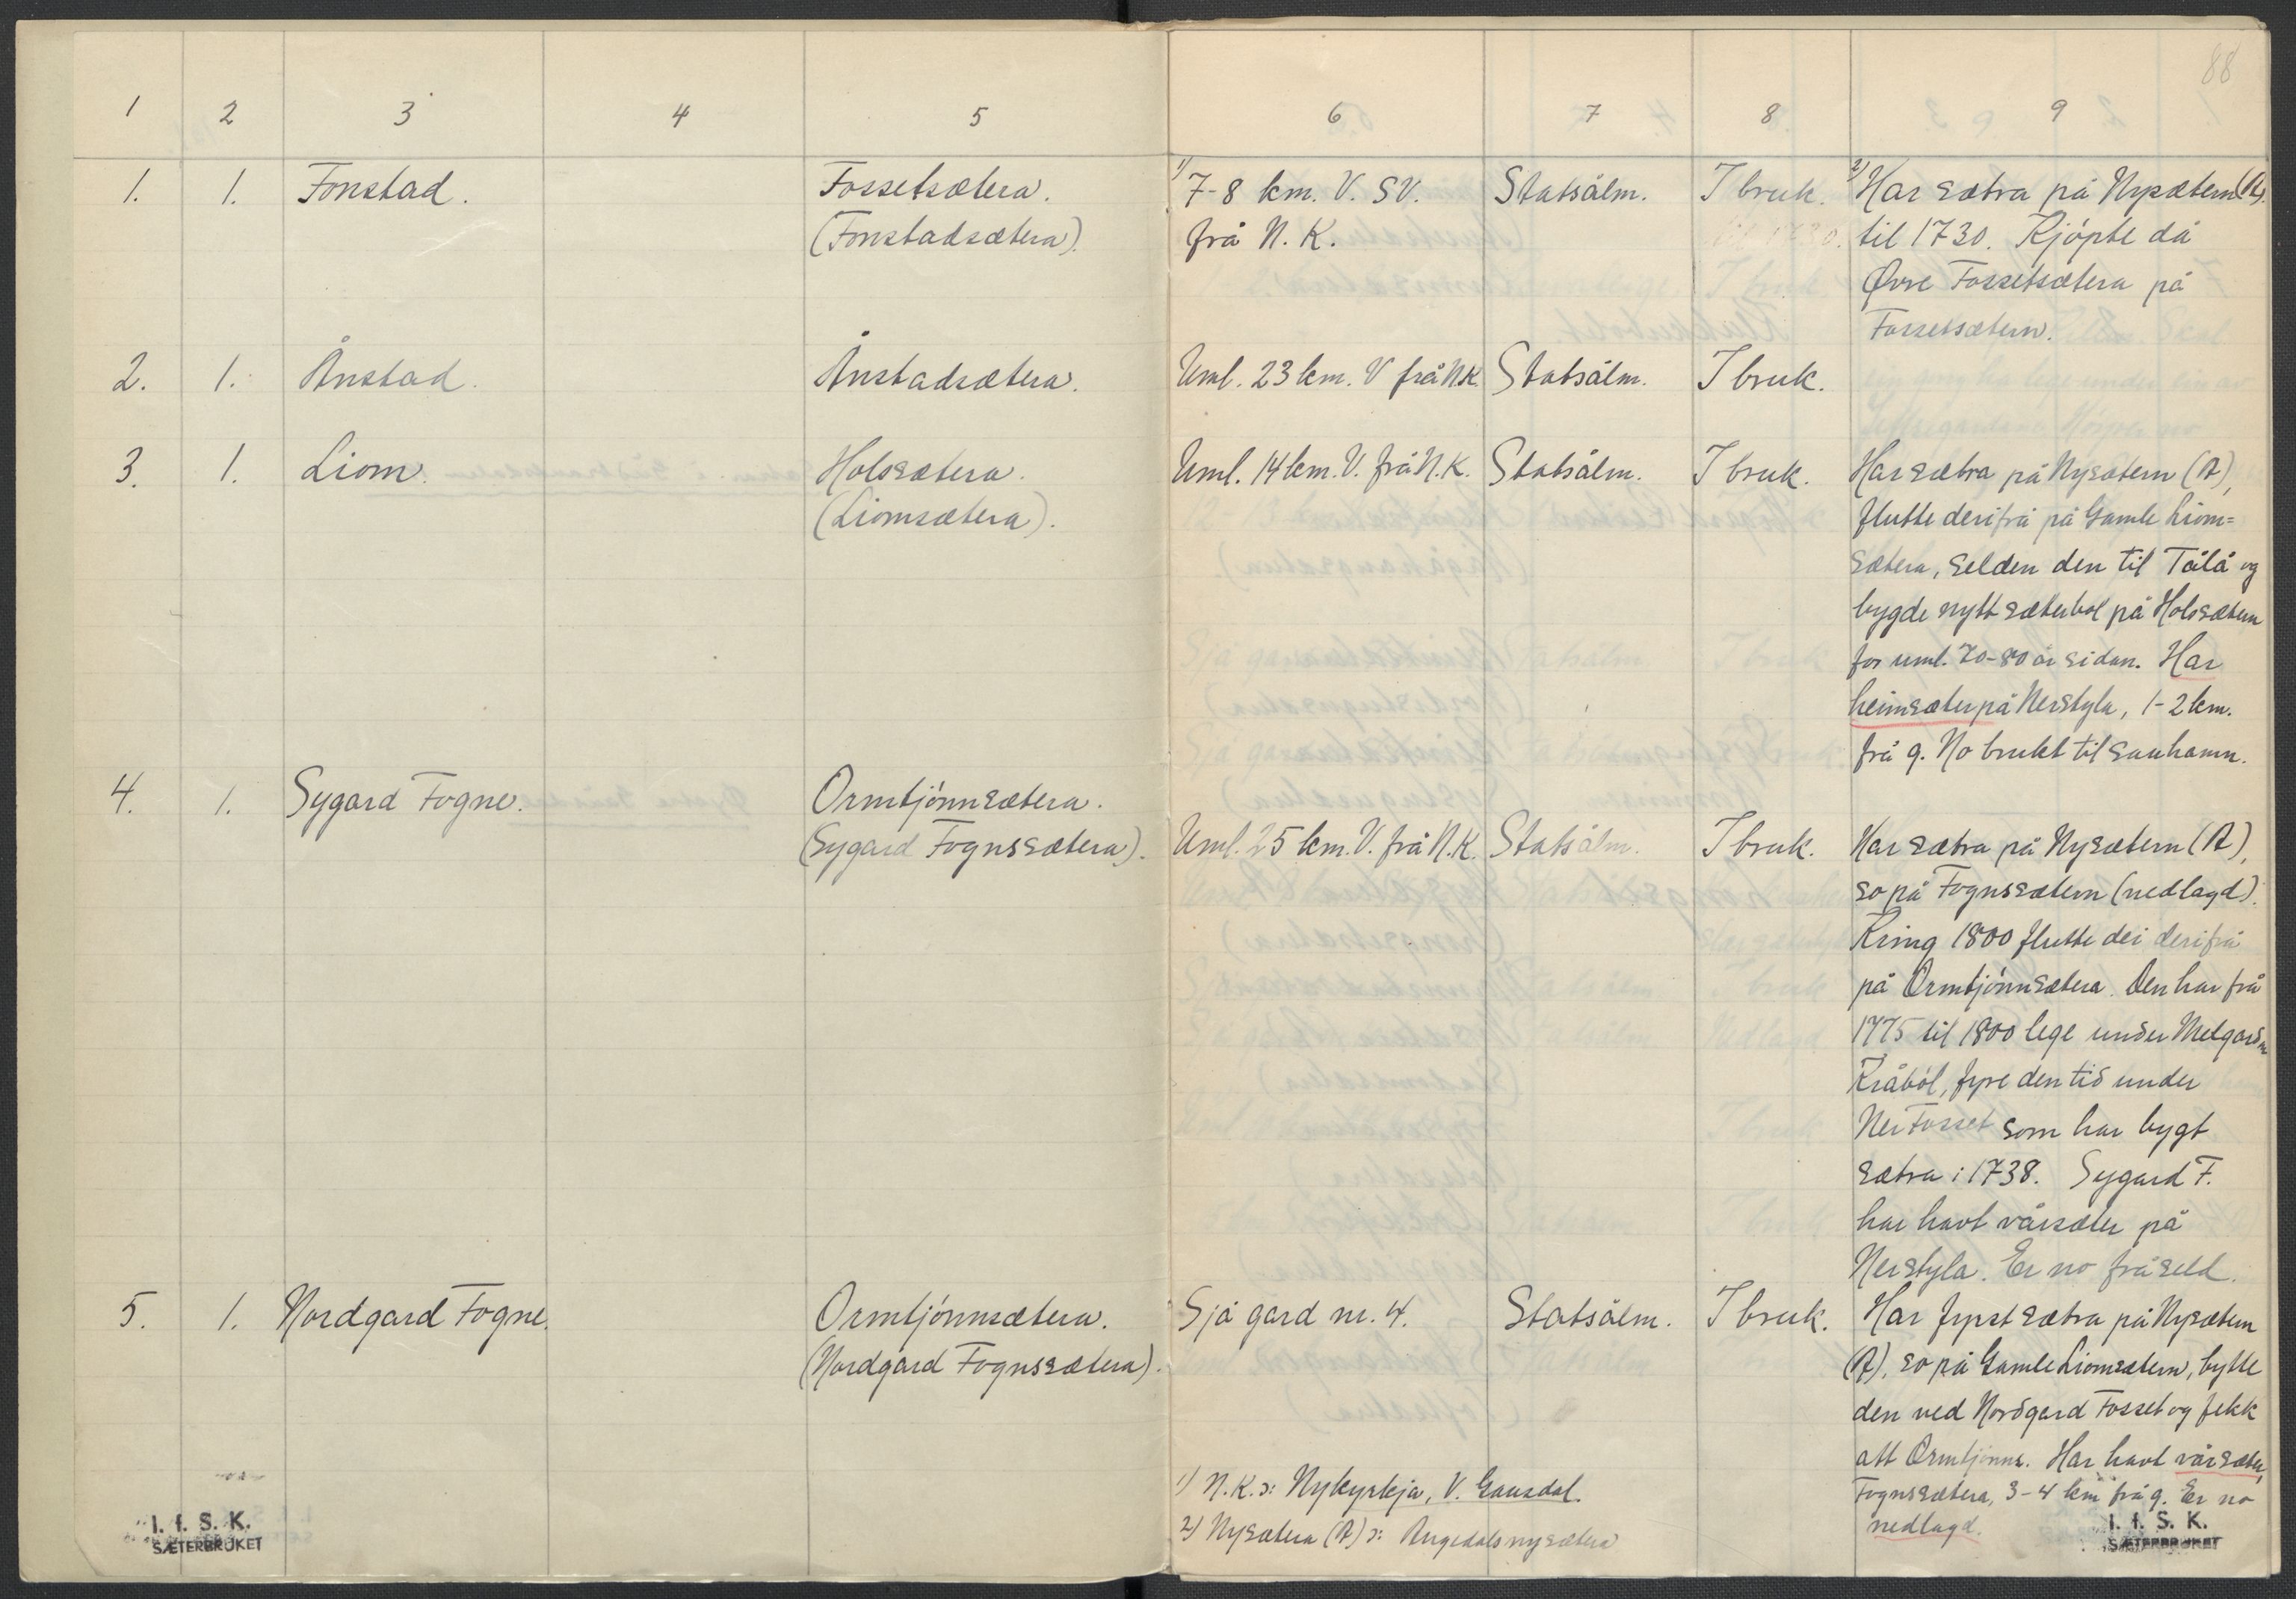 88
1 2 3 4 5 6 7 8 9
1. 1. Fonstad. Fossetsætera. 1) 7-8 km. V. SV. Statsålm. I bruk. 2) Har sætra på Nysætern (A).
(Fonstadsætera). frå N. K. til 1730. Kjópte då
Øvre Fossetsætera på
Fossetsætern.
2. 1. Ånstad. Ånstadsætera. Uml. 23 km. V frå N.K. Statsålm. I bruk.
3. 1. Liom. Holssætera. Uml. 14 km. V. frå N.K. Statsålm. I bruk. Har sætra på Nysætern (A),
(Liomsætera). flutte derifrå på Gamle Liom=
sætera, selden den til Tålå og
bygde nytt sæterbol på Holssætern
for uml. 70-80 år sidan. Har
heimsæter på Nerstyla, 1-2 km.
frå g. No brukt til sauhamn.
4. 1. Sygard Fogne. Ormtjónnsætera.
(Sygard Fognssætera). Uml. 25 km. V. frå N.K. Statsålm. I bruk. Har sætra på Nysætern (A),
so på Fognssætern (nedlagd).
Kring 1800 flutte dei derifrå
på Ormtjónnsætera. Den har frå
1775 til 1800 lege under Melgard
Kråból, fyre den tid under
Ner Fosset som har bygt
sætra i 1738. Sygard F.
har havt vårsæter på
Nerstyla. Er no fråseld.
5. 1. Nordgard Fogne. Ormtjónnsætera. Sjå gard nr. 4. Statsålm. I bruk. Har fyrst sætra på Nysætern
(Nordgard Fognssætera). (A), so på Gamle Liomsætern, bytte
den ved Nordgard Fosset og fekk
att Ormtjónns. Har havt vårsæter,
1) N.K. ɔ: Nykyrkja, V. Gausdal. Fognssætera, 3-4 km frå g. Er no
2) Nysætera (A) ɔ: Augedalsnysætera nedlagd.
I. f. S. K.
SÆTERBRUKET
I. f. S. K.
SÆTERBRUKET